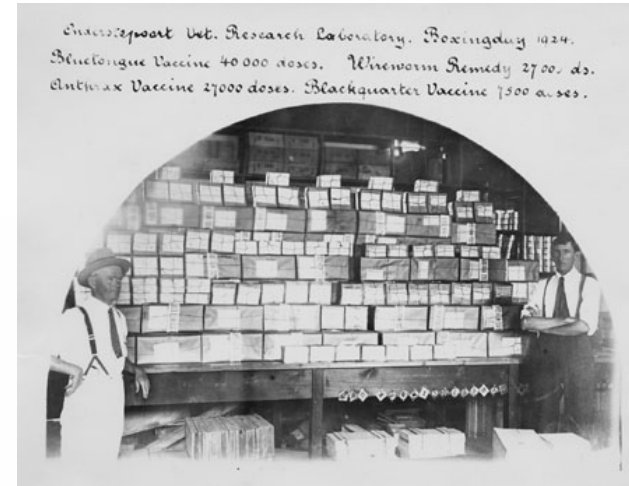 Onderstepoort Vet. Research Laboratory. Boxingday 1924.
Bluetongue Vaccine 40 000 doses. Wireworm Remedy ds.
Anthrax Vaccine 27000 doses. Blackquarter Vaccine 7500 doses.